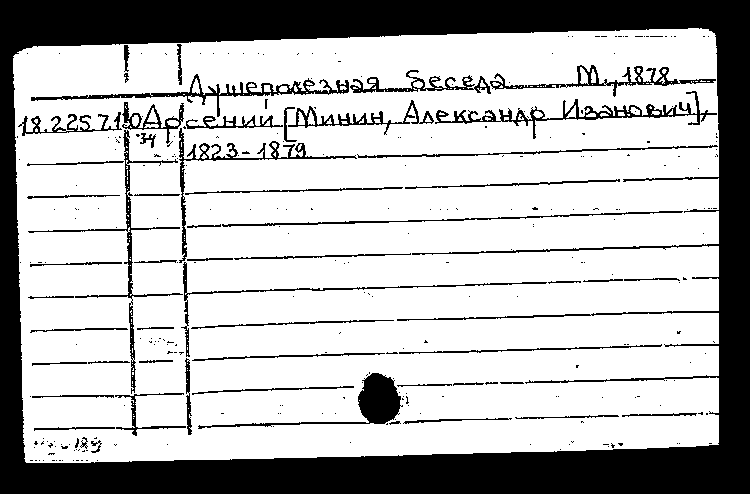 Душеполезная беседа М., 1878.
18.225.7.10 Арсений [Минин, Александр Иванович],
34 1823-1879
189